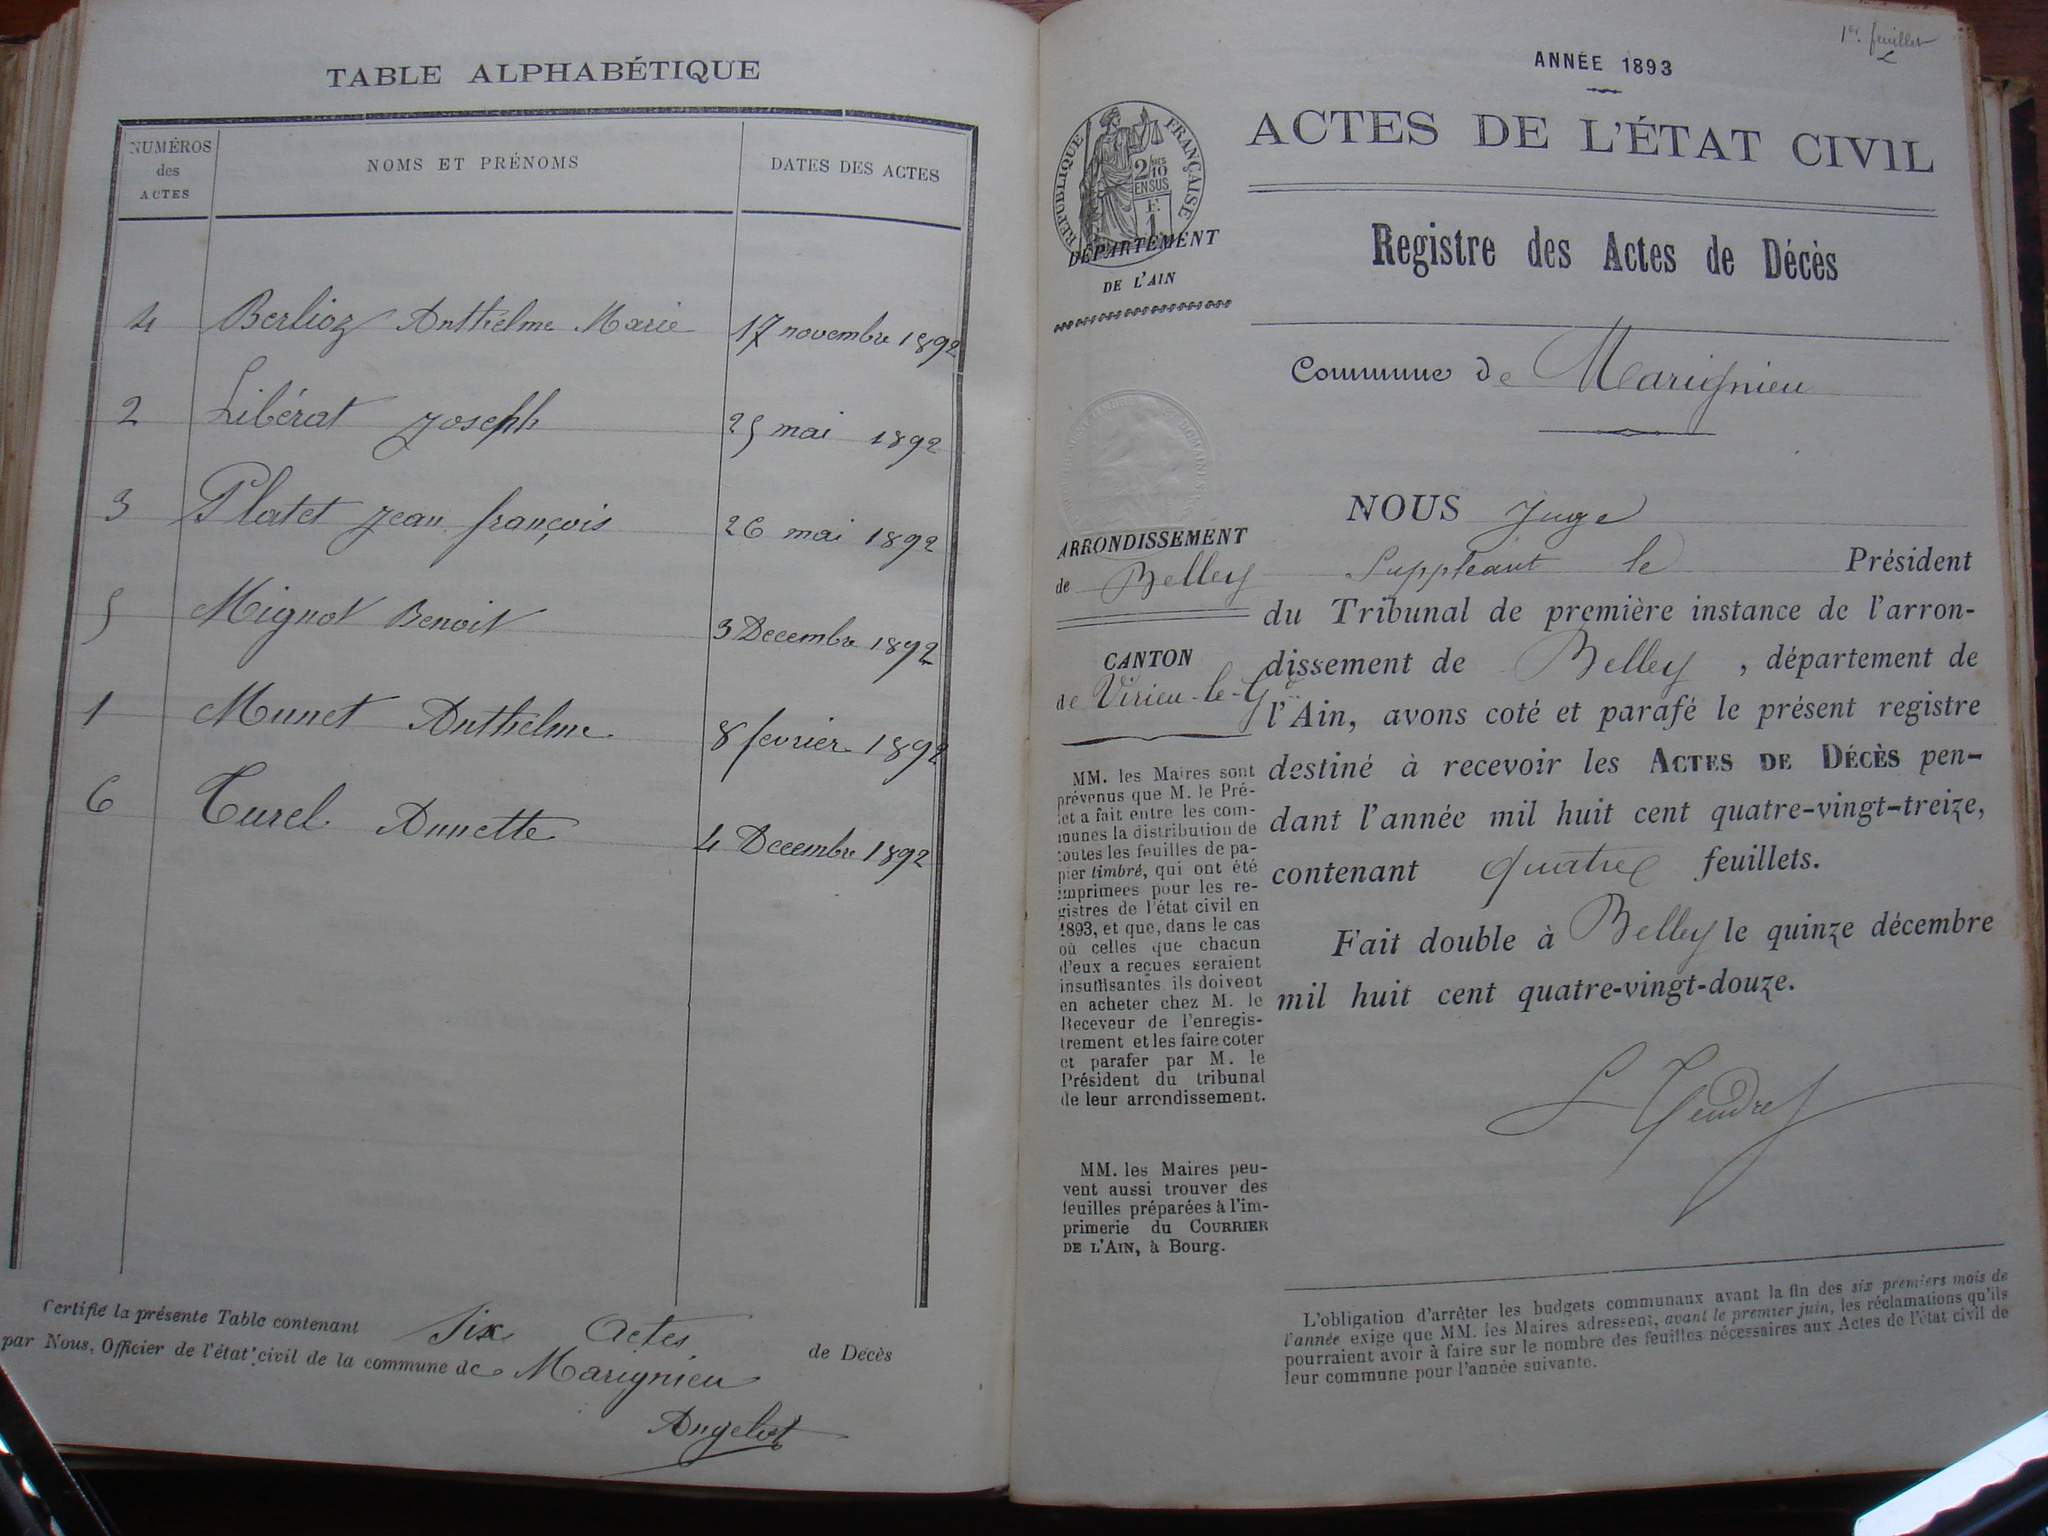 TABLE ALPHABÉTIQUE
NUMÉROS
des
ACTES
NOMS ET PRÉNOMS
DATES DES ACTES
4 Berlioz Anthelme Marie 17 novembre 1892
2 Libérat Joseph 25 mai 1892
3 Platet Jean françois 26 mai 1892
5 Mignot Benoit 3 Decembre 1892
1 Munet Anthelme 8 fevrier 1892
6 Curel Annette 4 Decembre 1892
Certifié la présente Table contenant Six Actes de Décès
par Nous, Officier de l'état civil de la commune de Marignieu
Angelot
1er feuillet
ANNÉE 1893
RÉPUBLIQUE FRANÇAISE
2/10
EN SUS
F.
1
ACTES DE L'ÉTAT CIVIL
DÉPARTEMENT
DE L'AIN
Registre des Actes de Décès
Commune de Marignieu
ARRONDISSEMENT
de Belley
CANTON
de Virieu-le-Gd
MM. les Maires sont
prévenus que M. le Pré-
fet a fait entre les com-
munes la distribution de
toutes les feuilles de pa-
pier timbré, qui ont été
imprimees pour les re-
gistres de l'état civil en
1893, et que, dans le cas
où celles que chacun
d'eux a reçues seraient
insuffisantes ils doivent
en acheter chez M. le
Receveur de l'enregis-
trement et les faire coter
et parafer par M. le
Président du tribunal
de leur arrondissement.
MM. les Maires peu-
vent aussi trouver des
feuilles préparées à l'im-
primerie du COURRIER
DE L'AIN, à Bourg.
NOUS Juge
Suppleant le Président
du Tribunal de première instance de l'arron-
dissement de Belley, département de
l'Ain, avons coté et parafé le présent registre
destiné à recevoir les ACTES DE DÉCÈS pen-
dant l'année mil huit cent quatre-vingt-treize,
contenant quatre feuillets.
Fait double à Belley le quinze décembre
mil huit cent quatre-vingt-douze.
L'obligation d'arrêter les budgets communaux avant la fin des six premiers mois de
l'année exige que MM. les Maires adressent, avant le premier juin, les réclamations qu'ils
pourraient avoir à faire sur le nombre des feuilles nécessaires aux Actes de l'état civil de
leur commune pour l'année suivante.